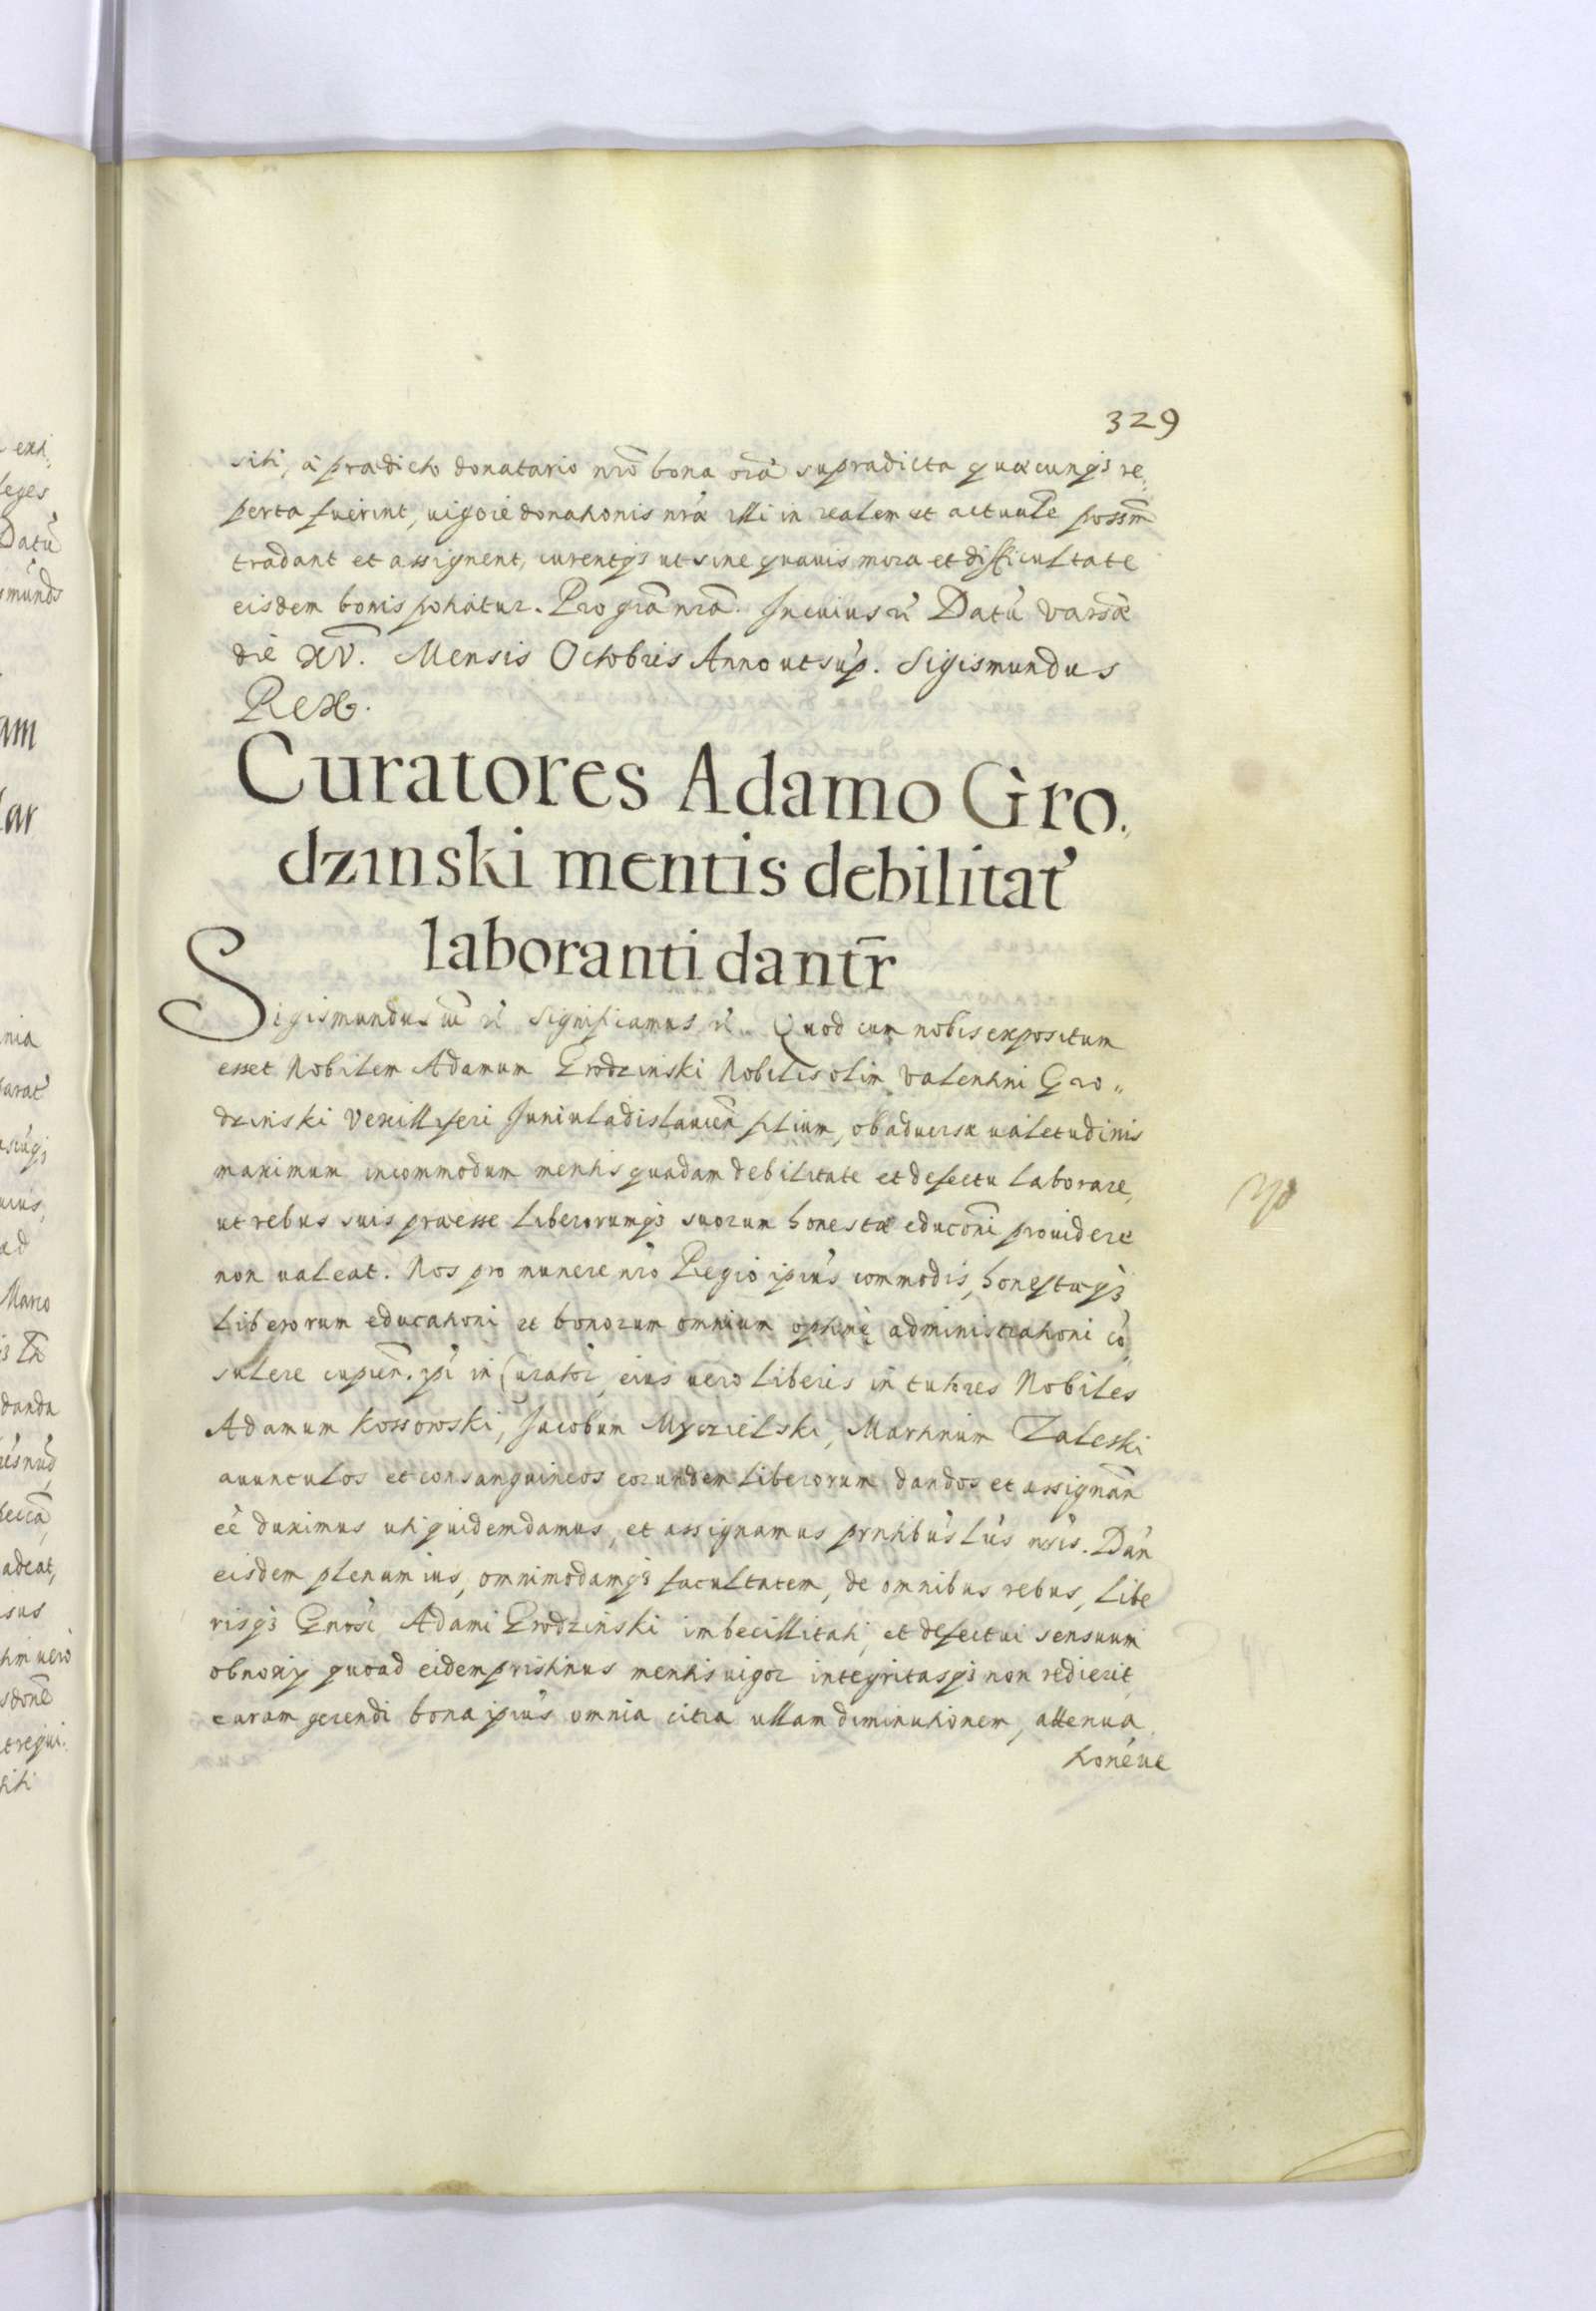 329
siti, à praedicto donatario nrõ bona oĩa supradicta quaecunq₃ re„
perta fuerint, uigore donationis nrã illi in realem et actualẽ possm̃
tradant et assignent, curentq₃ ut sine quauis mora et difficultate
eisdem bonis potiatur. Pro grã nrã. In cuius rẽ Datũ Varsã
die XV. Mensis Octobris Anno ut sup. Sigismundus
Rex.
Curatores Adamo Gro„
dzinski mentis debilitat'
laboranti dantr̃
Sigismundus &c. Significamus &c. Quod cum nobis expositum
esset Nobilem Adamum Grodzinski Nobilis olim Valentini Gro„
dzinski Vexilliferi Juniuladislauień filium, ob aduersae ualetudinis
maximum incommodum mentis quadam debilitate et defectu laborare,
ut rebus suis praeesse liberorumq₃ suorum honestae educoñi prouidere
non ualeat. Nos pro munere nr̃o Regio ipius commodis, honestaeq₃
liberorum educationi et bonorum omnium optime administrationi cõ„
sulere cupień. ipi in Curator, eius uero liberis in tutores Nobiles
Adamum Kossowski, Jacobum Mycielski, Martinum Zaleski
auunculos et consanguineos eorundem liberorum dandos et assignań
eẽ duximus uti quidem damus, et assignamus prñtibus lris nris. Dań
eisdem plenum ius, omnimodamq₃ facultatem, de omnibus rebus, libe
risq₃ Gnosi Adami Grodzinski imbecillitati, et defectui sensuum
obnoxij quoad eidem pristinus mentis uigor integritasq₃ non redierit
curam gerendi bona ipius omnia citra ullam diminutionem, attenua
tionẽue